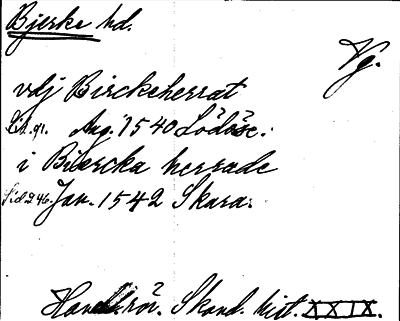 Bjerke hd.
Vg.
vdj Birckeherrat
Lit. 91. Aug. 1540 Lödöse.
i Biercka herrade
Sid 246. Jan. 1542 Skara.
Handl. rör. Skand. hist. XXIX.